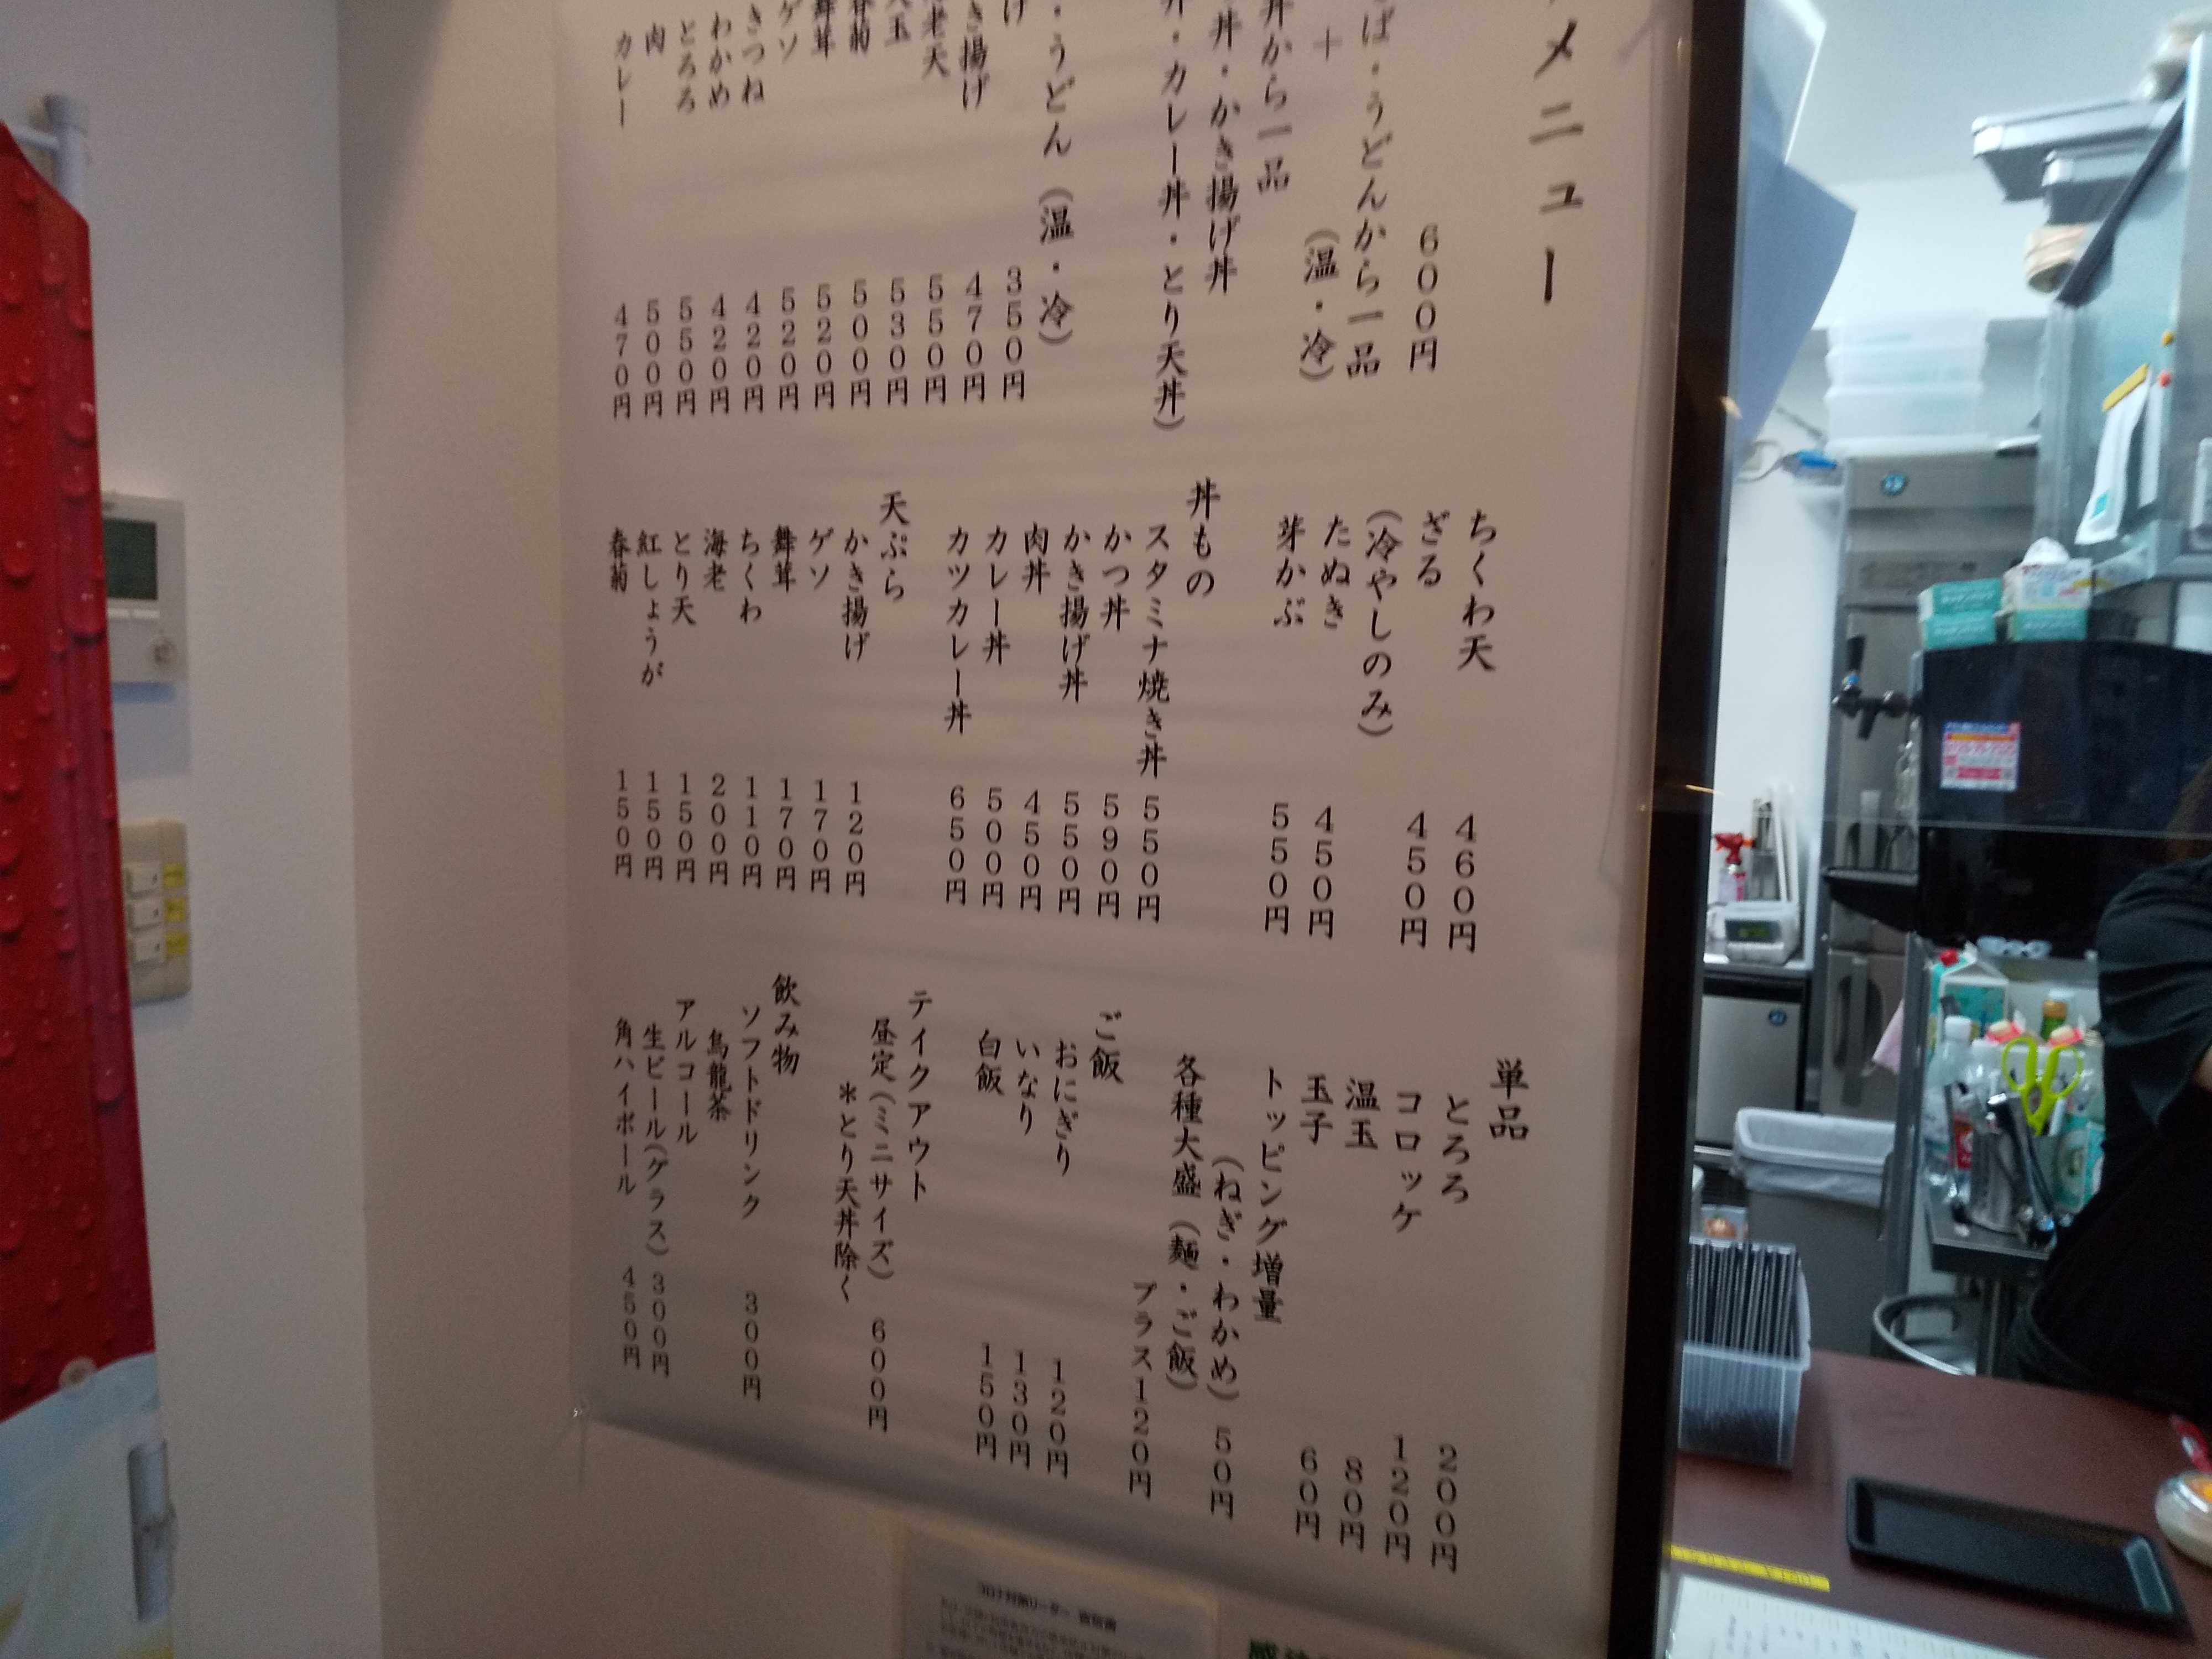 メニュー
600円
ば・うどんから一品
(温・冷)
+
丼から一品
丼・かき揚げ丼
丼・カレー丼・とり天丼)
・うどん (温・冷)
け 350円
き揚げ 470円
老天 550円
玉 530円
春菊 500円
舞茸 520円
ゲソ 520円
きつね 420円
わかめ 420円
とろろ 550円
肉 500円
カレー 470円
ちくわ天 460円
ざる 450円
(冷やしのみ)
たぬき 450円
芽かぶ 550円
丼もの
スタミナ焼き丼 550円
かつ丼 590円
かき揚げ丼 550円
肉丼 450円
カレー丼 500円
カツカレー丼 650円
天ぷら
かき揚げ 120円
ゲソ 170円
舞茸 170円
ちくわ 110円
海老 200円
とり天 150円
紅しょうが 150円
春菊 150円
単品
とろろ 200円
コロッケ 120円
温玉 80円
玉子 60円
トッピング増量
(ねぎ・わかめ) 50円
各種大盛 (麺・ご飯)
プラス120円
ご飯
おにぎり 120円
いなり 130円
白飯 150円
テイクアウト
昼定(ミニサイズ) 600円
*とり天丼除く
飲み物
ソフトドリンク 300円
烏龍茶
アルコール
生ビール(グラス) 300円
角ハイボール 450円